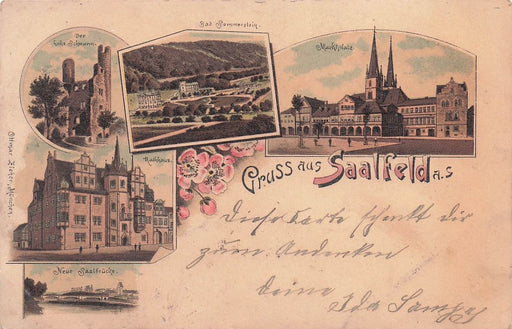 Der
Hohe Schwarm.
Bad Sommerstein.
Marktplatz
Rathhaus.
Gruss aus Saalfeld a. S
Neue Saalbrücke.
Ottmar Zieher, München.
Diese Karte schenkt dir
zum Andenken
deine
Ida